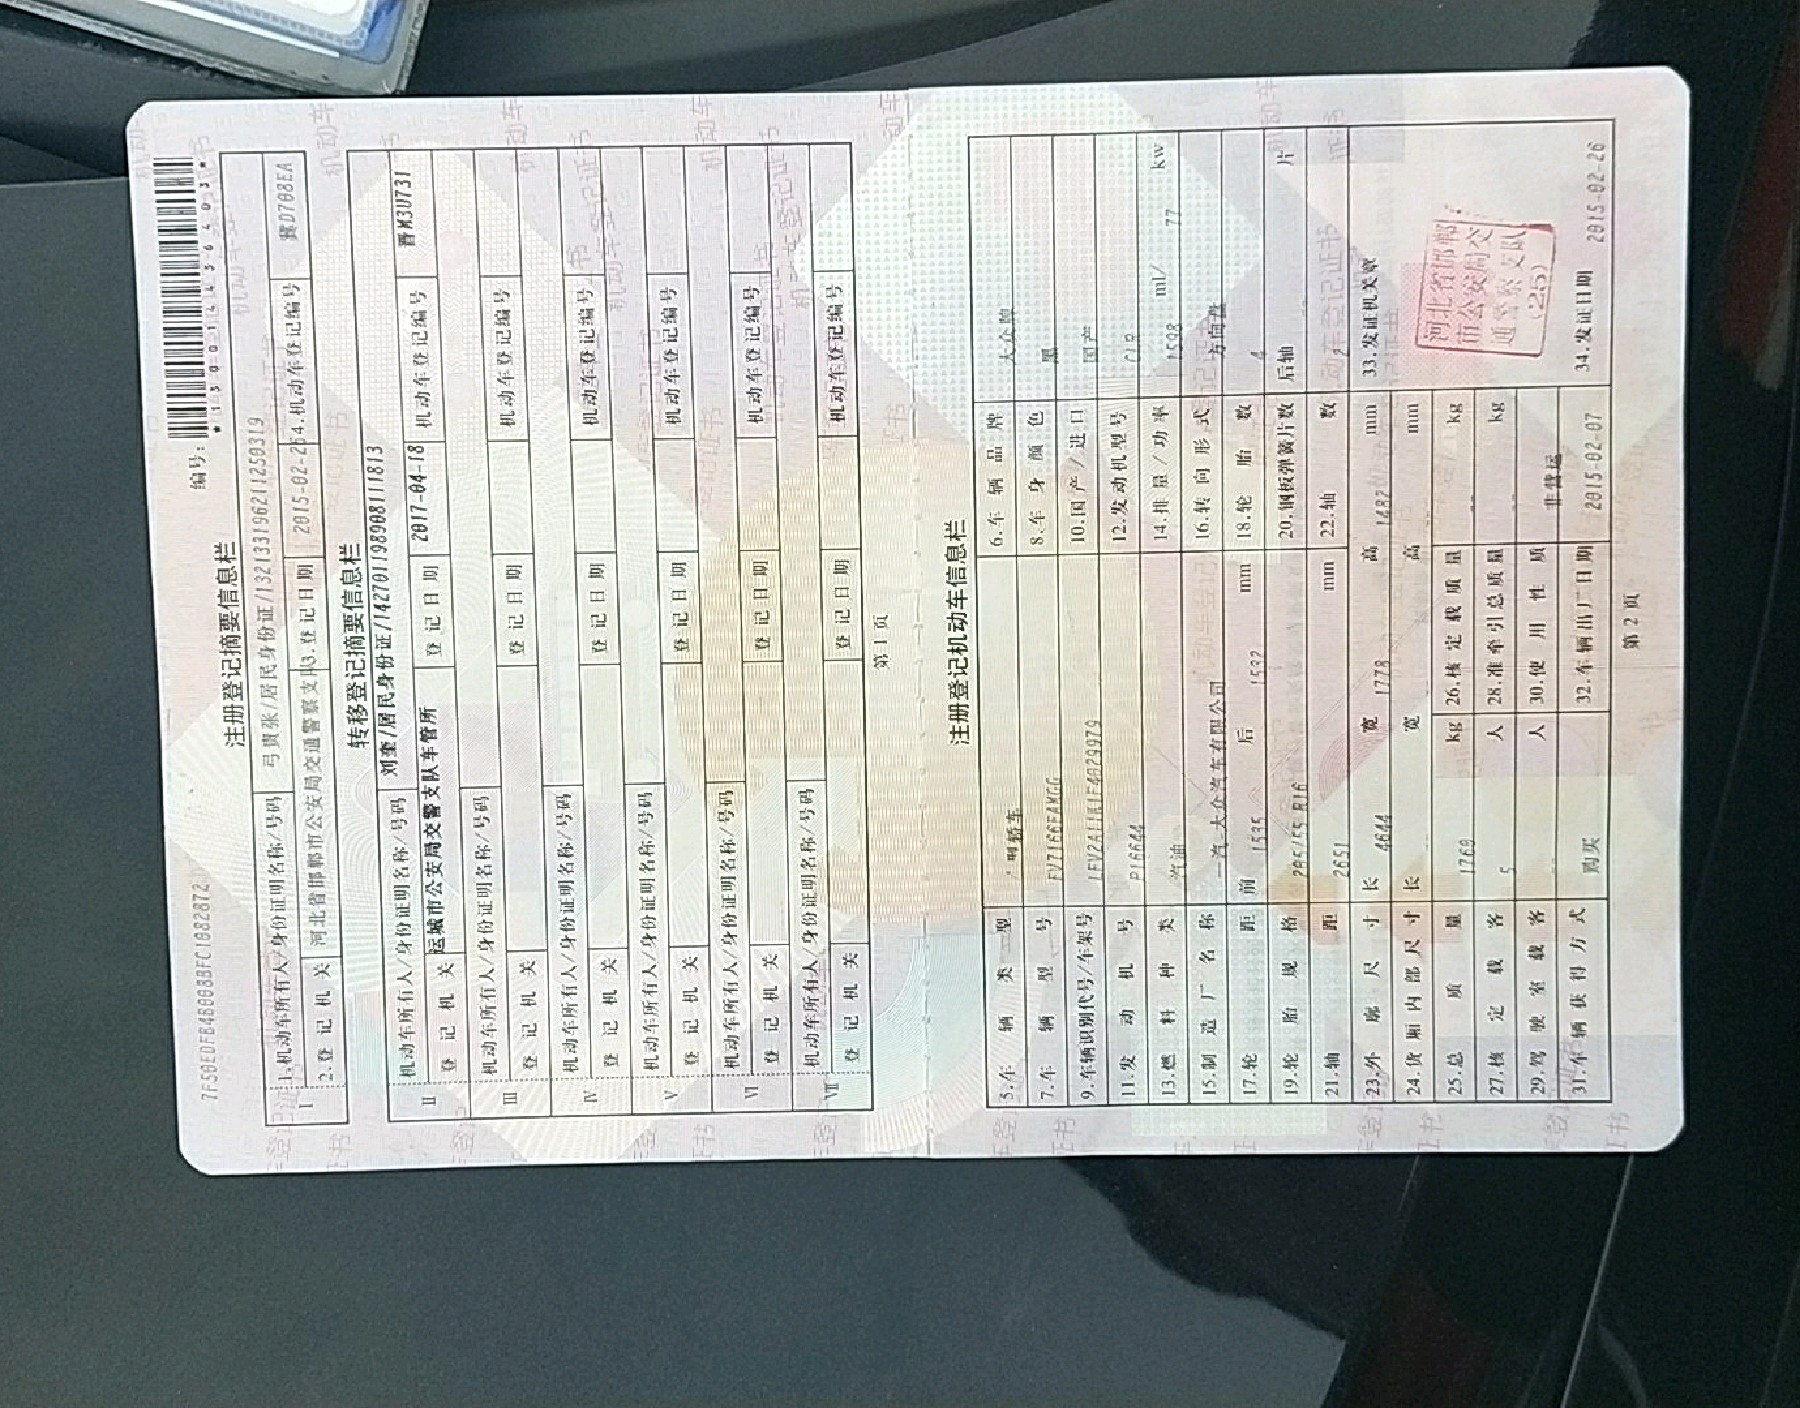 7F50EDFB4B00BBFC1082872
编号:
*130014436403*
注册登记摘要信息栏
I 1.机动车所有人/身份证明名称/号码 弓贵张/居民身份证/132133196211250319
2.登记机关 河北省邯郸市公安局交通警察支队 3.登记日期 2015-02-26 4.机动车登记编号 冀D708EA
转移登记摘要信息栏
II 机动车所有人/身份证明名称/号码 刘奎/居民身份证/142701198908111813
登记机关 运城市公安局交警支队车管所 登记日期 2017-04-18 机动车登记编号 晋M3U731
III 机动车所有人/身份证明名称/号码
登记机关 登记日期 机动车登记编号
IV 机动车所有人/身份证明名称/号码
登记机关 登记日期 机动车登记编号
V 机动车所有人/身份证明名称/号码
登记机关 登记日期 机动车登记编号
VI 机动车所有人/身份证明名称/号码
登记机关 登记日期 机动车登记编号
VII 机动车所有人/身份证明名称/号码
登记机关 登记日期 机动车登记编号
第1页
注册登记机动车信息栏
5.车辆类型 型轿车 6.车辆品牌 大众牌
7.车辆型号 FV7166FAKGG 8.车身颜色 黑
9.车辆识别代号/车架号 10.国产/进口 国产
11.发动机号 P16644 12.发动机型号
13.燃料种类 汽油 14.排量/功率 1598 ml/ 77 kw
15.制造厂名称 一汽-大众汽车有限公司 16.转向形式 方向盘
17.轮距 前 1535 后 1532 mm 18.轮胎数 4
19.轮胎规格 205/55R16 20.钢板弹簧片数 后轴 片
21.轴距 2651 mm 22.轴数 2
23.外廓尺寸 长 4644 宽 1778 高 1482 mm 33.发证机关章
24.货厢内部尺寸 长 宽 高 mm
25.总质量 1760 kg 26.核定载质量 kg
27.核定载客 5 人 28.准牵引总质量 kg
29.驾驶室载客 人 30.使用性质 非营运
31.车辆获得方式 购买 32.车辆出厂日期 2015-02-07 34.发证日期 2015-02-26
河北省邯郸
市公安局交
通警察支队
(25)
第2页